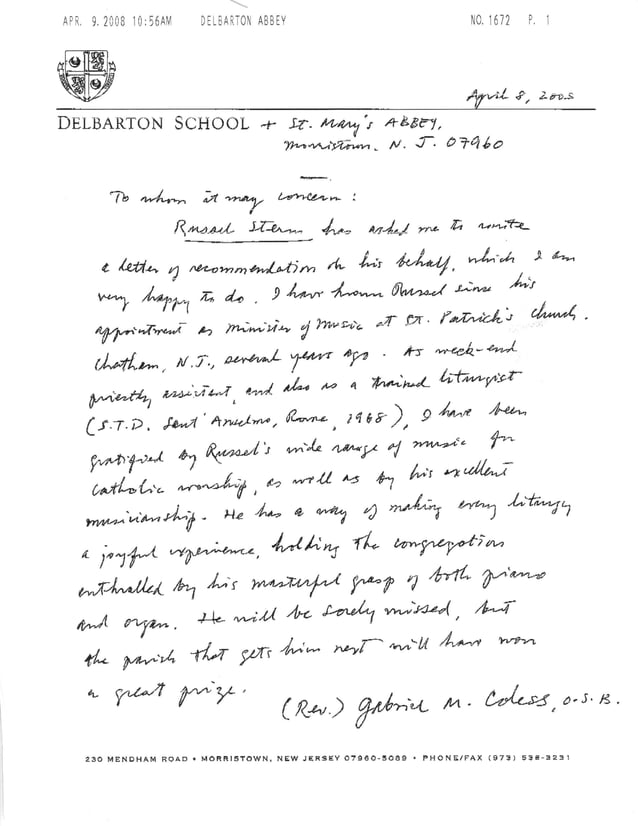 APR. 9. 2008 10:56AM DELBARTON ABBEY NO. 1672 P. 1
April 8, 2008
DELBARTON SCHOOL + St. Mary's ABBEY,
Morristown, N. J. 07960
To whom it may concern:
Russel Sterm has asked me to write
a letter of recommendation on his behalf, which I am
very happy to do. I have known Russel since his
appointment as minister of music at St. Patrick's Church.
Chatham, N.J., several years ago. As week-end
priestly assistant, and also as a trained liturgist
(S.T.D. Sant' Anselmo, Rome, 1968), I have been
gratified by Russel's wide range of music for
Catholic worship, as well as by his excellent
musicianship. He has a way of making every liturgy
a joyful experience, holding the congregation
enthralled by his masterful grasp of both piano
and organ. He will be sorely missed, but
the parish that gets him next will have won
a great prize.
(Rev.) Gabriel M. Coless, O.S.B.
230 MENDHAM ROAD • MORRISTOWN, NEW JERSEY 07960-5089 • PHONE/FAX (973) 538-3231